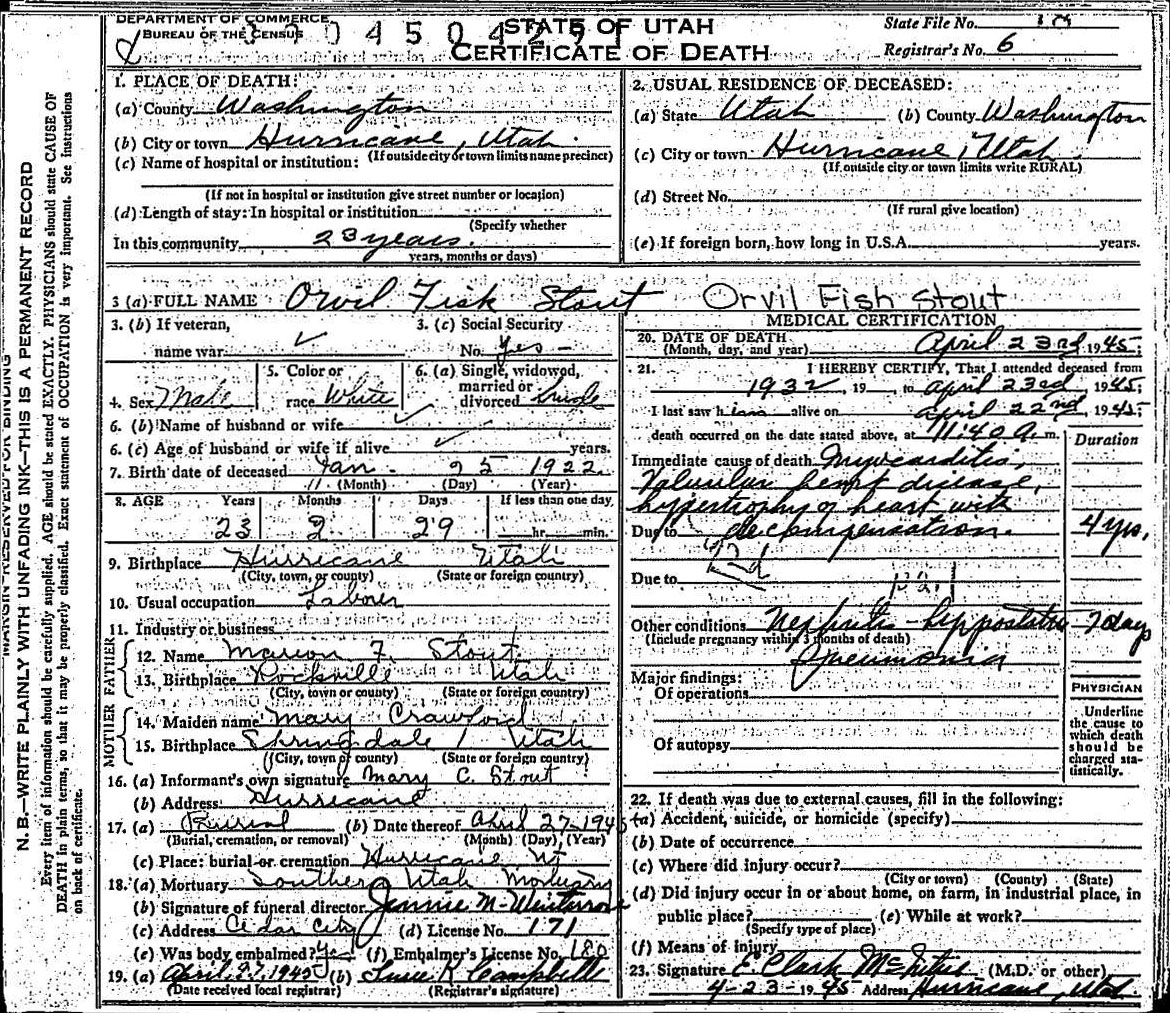 DEPARTMENT OF COMMERCE
BUREAU OF THE CENSUS
STATE OF UTAH
CERTIFICATE OF DEATH
State File No.
Registrar's No. 6
MARGIN RESERVED FOR BINDING
N. B.—WRITE PLAINLY WITH UNFADING INK—THIS IS A PERMANENT RECORD
Every item of information should be carefully supplied. AGE should be stated EXACTLY. PHYSICIANS should state CAUSE OF
DEATH in plain terms, so that it may be properly classified. Exact statement of OCCUPATION is very important. See instructions
on back of certificate.
1. PLACE OF DEATH:
(a) County Washington
(b) City or town Hurricane, Utah
(If outside city or town limits name precinct)
(c) Name of hospital or institution:
(If not in hospital or institution give street number or location)
(d) Length of stay: In hospital or institution
(Specify whether
In this community 23 years.
years, months or days)
2. USUAL RESIDENCE OF DECEASED:
(a) State Utah (b) County Washington
(c) City or town Hurricane, Utah
(If outside city or town limits write RURAL)
(d) Street No.
(If rural give location)
(e) If foreign born, how long in U.S.A. years.
3 (a) FULL NAME Orvil Fisk Stout Orvil Fish Stout
3. (b) If veteran,
name war
3. (c) Social Security
No. Yes -
4. Sex Male
5. Color or
race White
6. (a) Single, widowed,
married or
divorced Single
6. (b) Name of husband or wife
6. (c) Age of husband or wife if alive years.
7. Birth date of deceased Jan. 25 1922
(Month) (Day) (Year)
8. AGE Years Months Days If less than one day,
23 2 29 hr. min.
9. Birthplace Hurricane Utah
(City, town, or county) (State or foreign country)
10. Usual occupation Laborer
11. Industry or business
FATHER
12. Name Marion F. Stout
13. Birthplace Rockville Utah
(City, town or county) (State or foreign country)
MOTHER
14. Maiden name Mary Crawford
15. Birthplace Springdale, Utah
(City, town or county) (State or foreign country)
16. (a) Informant's own signature Mary C. Stout
(b) Address Hurricane
17. (a) Burial (b) Date thereof April 27 1945
(Burial, cremation, or removal) (Month) (Day) (Year)
(c) Place: burial or cremation Hurricane Ut
18. (a) Mortuary Southern Utah Mortuary
(b) Signature of funeral director Jennie M.
(c) Address Cedar City (d) License No. 171
(e) Was body embalmed? Yes (f) Embalmer's License No. 180
19. (a) April 27, 1945 (b) K Campbell
(Date received local registrar) (Registrar's signature)
MEDICAL CERTIFICATION
20. DATE OF DEATH
(Month, day, and year) April 23rd 1945
21. I HEREBY CERTIFY, That I attended deceased from
1932, 19 , to April 23rd 1945
I last saw him alive on April 22nd, 1945;
death occurred on the date stated above, at 11:40 a. m.
Duration
Immediate cause of death Myocarditis,
Valvular heart disease,
hypertrophy of heart with
Due to decompensation. 4 yrs.
Due to
Other conditions Nephritis - hypostatic 7 days
(Include pregnancy within 3 months of death)
Pneumonia
Major findings:
Of operations
Of autopsy
PHYSICIAN
Underline
the cause to
which death
should be
charged sta-
tistically.
22. If death was due to external causes, fill in the following:
(a) Accident, suicide, or homicide (specify)
(b) Date of occurrence
(c) Where did injury occur?
(City or town) (County) (State)
(d) Did injury occur in or about home, on farm, in industrial place, in
public place? (e) While at work?
(Specify type of place)
(f) Means of injury
23. Signature E. Clark (M.D. or other)
4-23-1945 Address Hurricane, Utah.